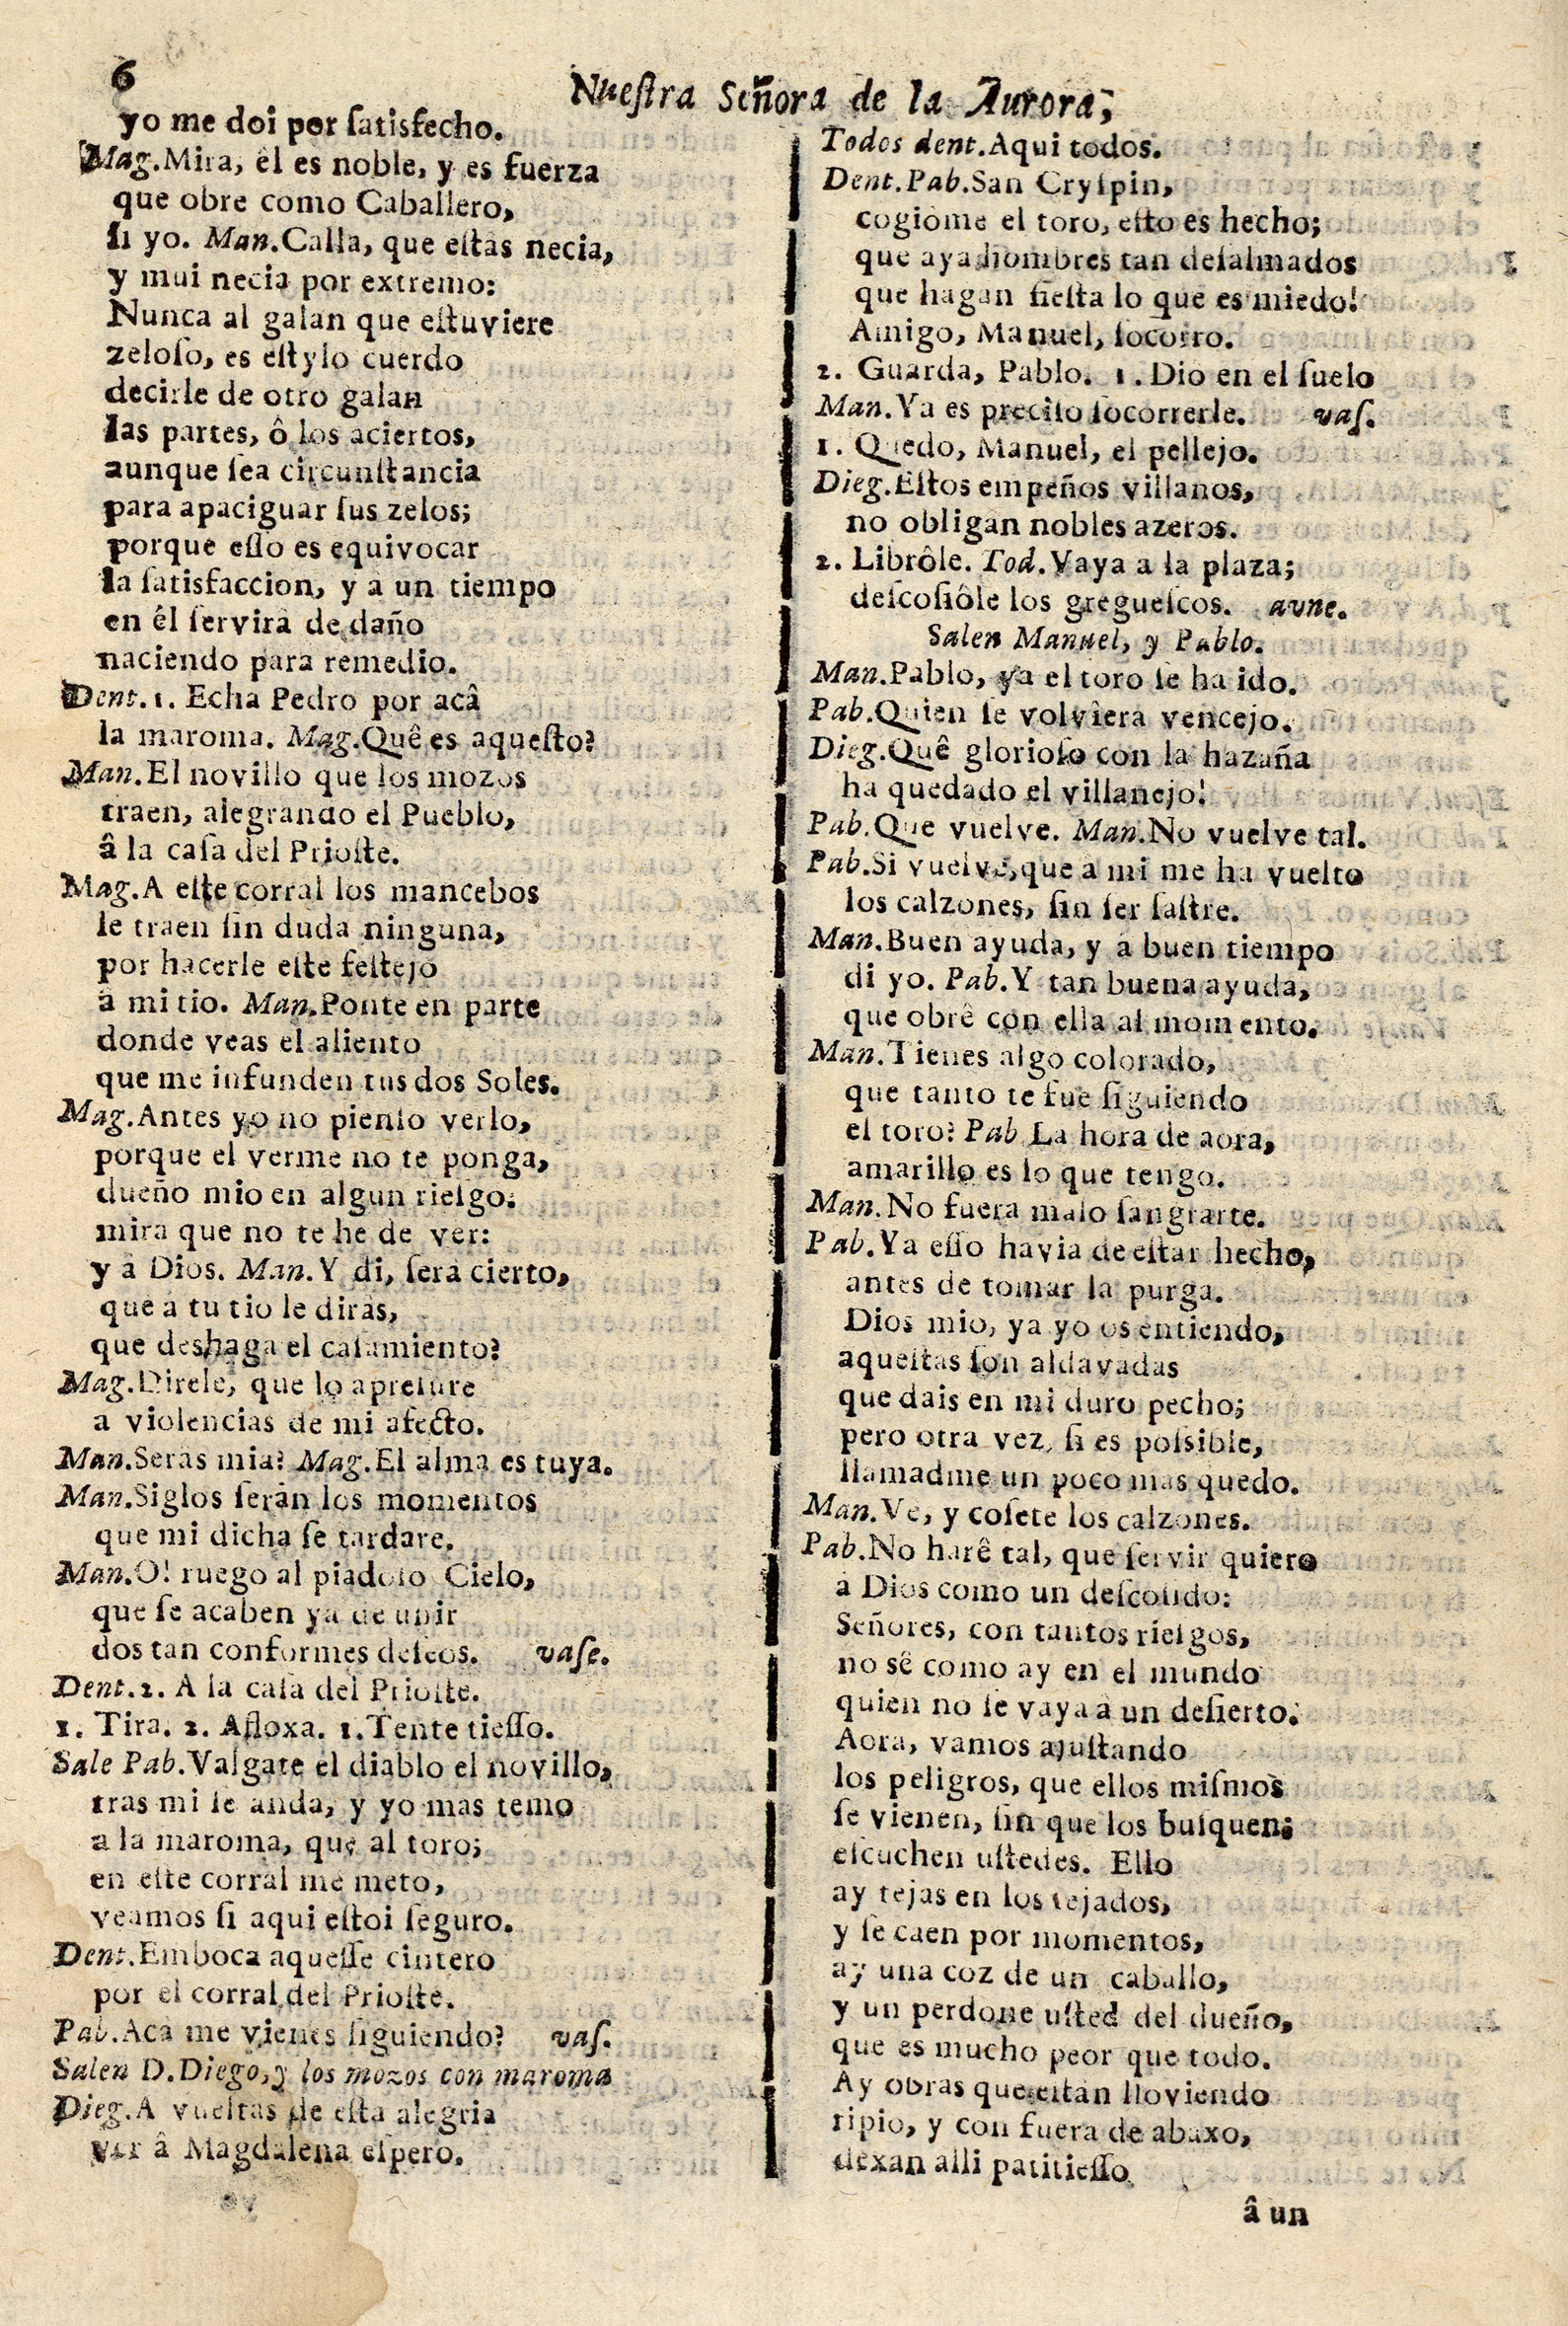 6
Nueſtra Señora de la Aurora,
yo me doi por ſatisfecho.
Mag.Mira, êl es noble, y es fuerza
que obre como Caballero,
ſi yo. Man.Calla, que eſtàs necia,
y mui necia por extremo:
Nunca al galan que eſtuviere
zeloſo, es eſtylo cuerdo
decirle de otro galan
las partes, ô los aciertos,
aunque ſea circunſtancia
para apaciguar ſus zelos;
porque eſſo es equivocar
la ſatisfaccion, y a un tiempo
en êl ſervirà de daño
naciendo para remedio.
Dent.1. Echa Pedro por acâ
la maroma. Mag.Quê es aqueſto?
Man.El novillo que los mozos
traen, alegrando el Pueblo,
â la caſa del Prioſte.
Mag.A eſte corral los mancebos
le traen ſin duda ninguna,
por hacerle eſte feſtejo
à mi tio. Man.Ponte en parte
donde veas el aliento
que me infunden tus dos Soles.
Mag.Antes yo no pienſo verlo,
porque el verme no te ponga,
dueño mio en algun rieſgo:
mira que no te he de ver:
y à Dios. Man.Y di, ſerà cierto,
que a tu tio le diràs,
que deshaga el caſamiento?
Mag.Direle, que lo apreſure
a violencias de mi afecto.
Man.Seràs mia? Mag.El alma es tuya.
Man.Siglos ſeràn los momentos
que mi dicha ſe tardare.
Man.O! ruego al piadoſo Cielo,
que ſe acaben ya de unir
dos tan conformes deſeos. vaſe.
Dent.2. A la caſa del Prioſte.
1. Tira. 2. Afloxa. 1.Tente tieſſo.
Sale Pab.Valgate el diablo el novillo,
tras mi ſe anda, y yo mas temo
a la maroma, que al toro;
en eſte corral me meto,
veamos ſi aqui eſtoi ſeguro.
Dent.Emboca aqueſſe cintero
por el corral del Prioſte.
Pab.Acà me vienes ſiguiendo? vaſ.
Salen D.Diego,y los mozos con maroma
Dieg.A vueltas de eſta alegria
ver â Magdalena eſpero.
Todos dent.Aqui todos.
Dent.Pab.San Cryſpin,
cogiòme el toro, eſto es hecho;
que aya hombres tan deſalmados
que hagan fieſta lo que es miedo!
Amigo, Manuel, ſocorro.
2. Guarda, Pablo. 1.Dio en el ſuelo
Man.Ya es preciſo ſocorrerle. vaſ.
1. Quedo, Manuel, el pellejo.
Dieg.Eſtos empeños villanos,
no obligan nobles azeros.
2. Librôle. Tod.Vaya a la plaza;
deſcoſiôle los gregueſcos. avne.
Salen Manuel, y Pablo.
Man.Pablo, ya el toro ſe ha ido.
Pab.Quien ſe volviera vencejo.
Dieg.Quê glorioſo con la hazaña
ha quedado el villanejo!
Pab.Que vuelve. Man.No vuelve tal.
Pab.Si vuelve,que a mi me ha vuelto
los calzones, ſin ſer ſaſtre.
Man.Buen ayuda, y à buen tiempo
di yo. Pab.Y tan buena ayuda,
que obrê con ella al momento.
Man.Tienes algo colorado,
que tanto te fue ſiguiendo
el toro? Pab La hora de aora,
amarillo es lo que tengo.
Man.No fuera malo ſangrarte.
Pab.Ya eſſo havia de eſtar hecho,
antes de tomar la purga.
Dios mio, ya yo os entiendo,
aqueſtas ſon aldavadas
que dais en mi duro pecho;
pero otra vez, ſi es poſsible,
llamadme un poco mas quedo.
Man.Ve, y coſete los calzones.
Pab.No harê tal, que ſervir quiero
à Dios como un deſcoſido:
Señores, con tantos rieſgos,
no sê como ay en el mundo
quien no ſe vaya à un deſierto.
Aora, vamos ajuſtando
los peligros, que ellos miſmos
ſe vienen, ſin que los buſquen;
eſcuchen uſtedes. Ello
ay tejas en los tejados,
y ſe caen por momentos,
ay una coz de un caballo,
y un perdone uſted del dueño,
que es mucho peor que todo.
Ay obras que eſtàn lloviendo
ripio, y con fuera de abaxo,
dexan alli patitieſſo
â un